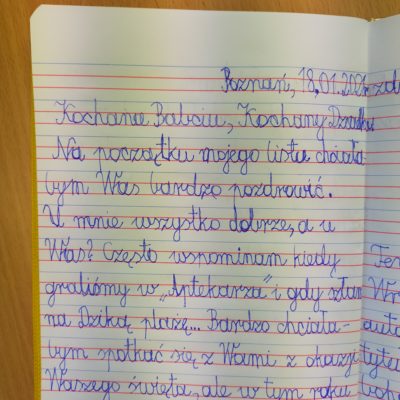 Poznań, 18,01.202
Kochana Babciu, Kochany Dziadku
Na początku mojego listu chciała-
bym Was bardzo pozdrowić.
U mnie wszystko dobrze, a u
Was? Często wspominam kiedy
graliśmy w „Aptekarza” i gdy szłam
na Dziką plażę... Bardzo chciała-
bym spotkać się z Wami z okazji
Waszego święta, ale w tym roku